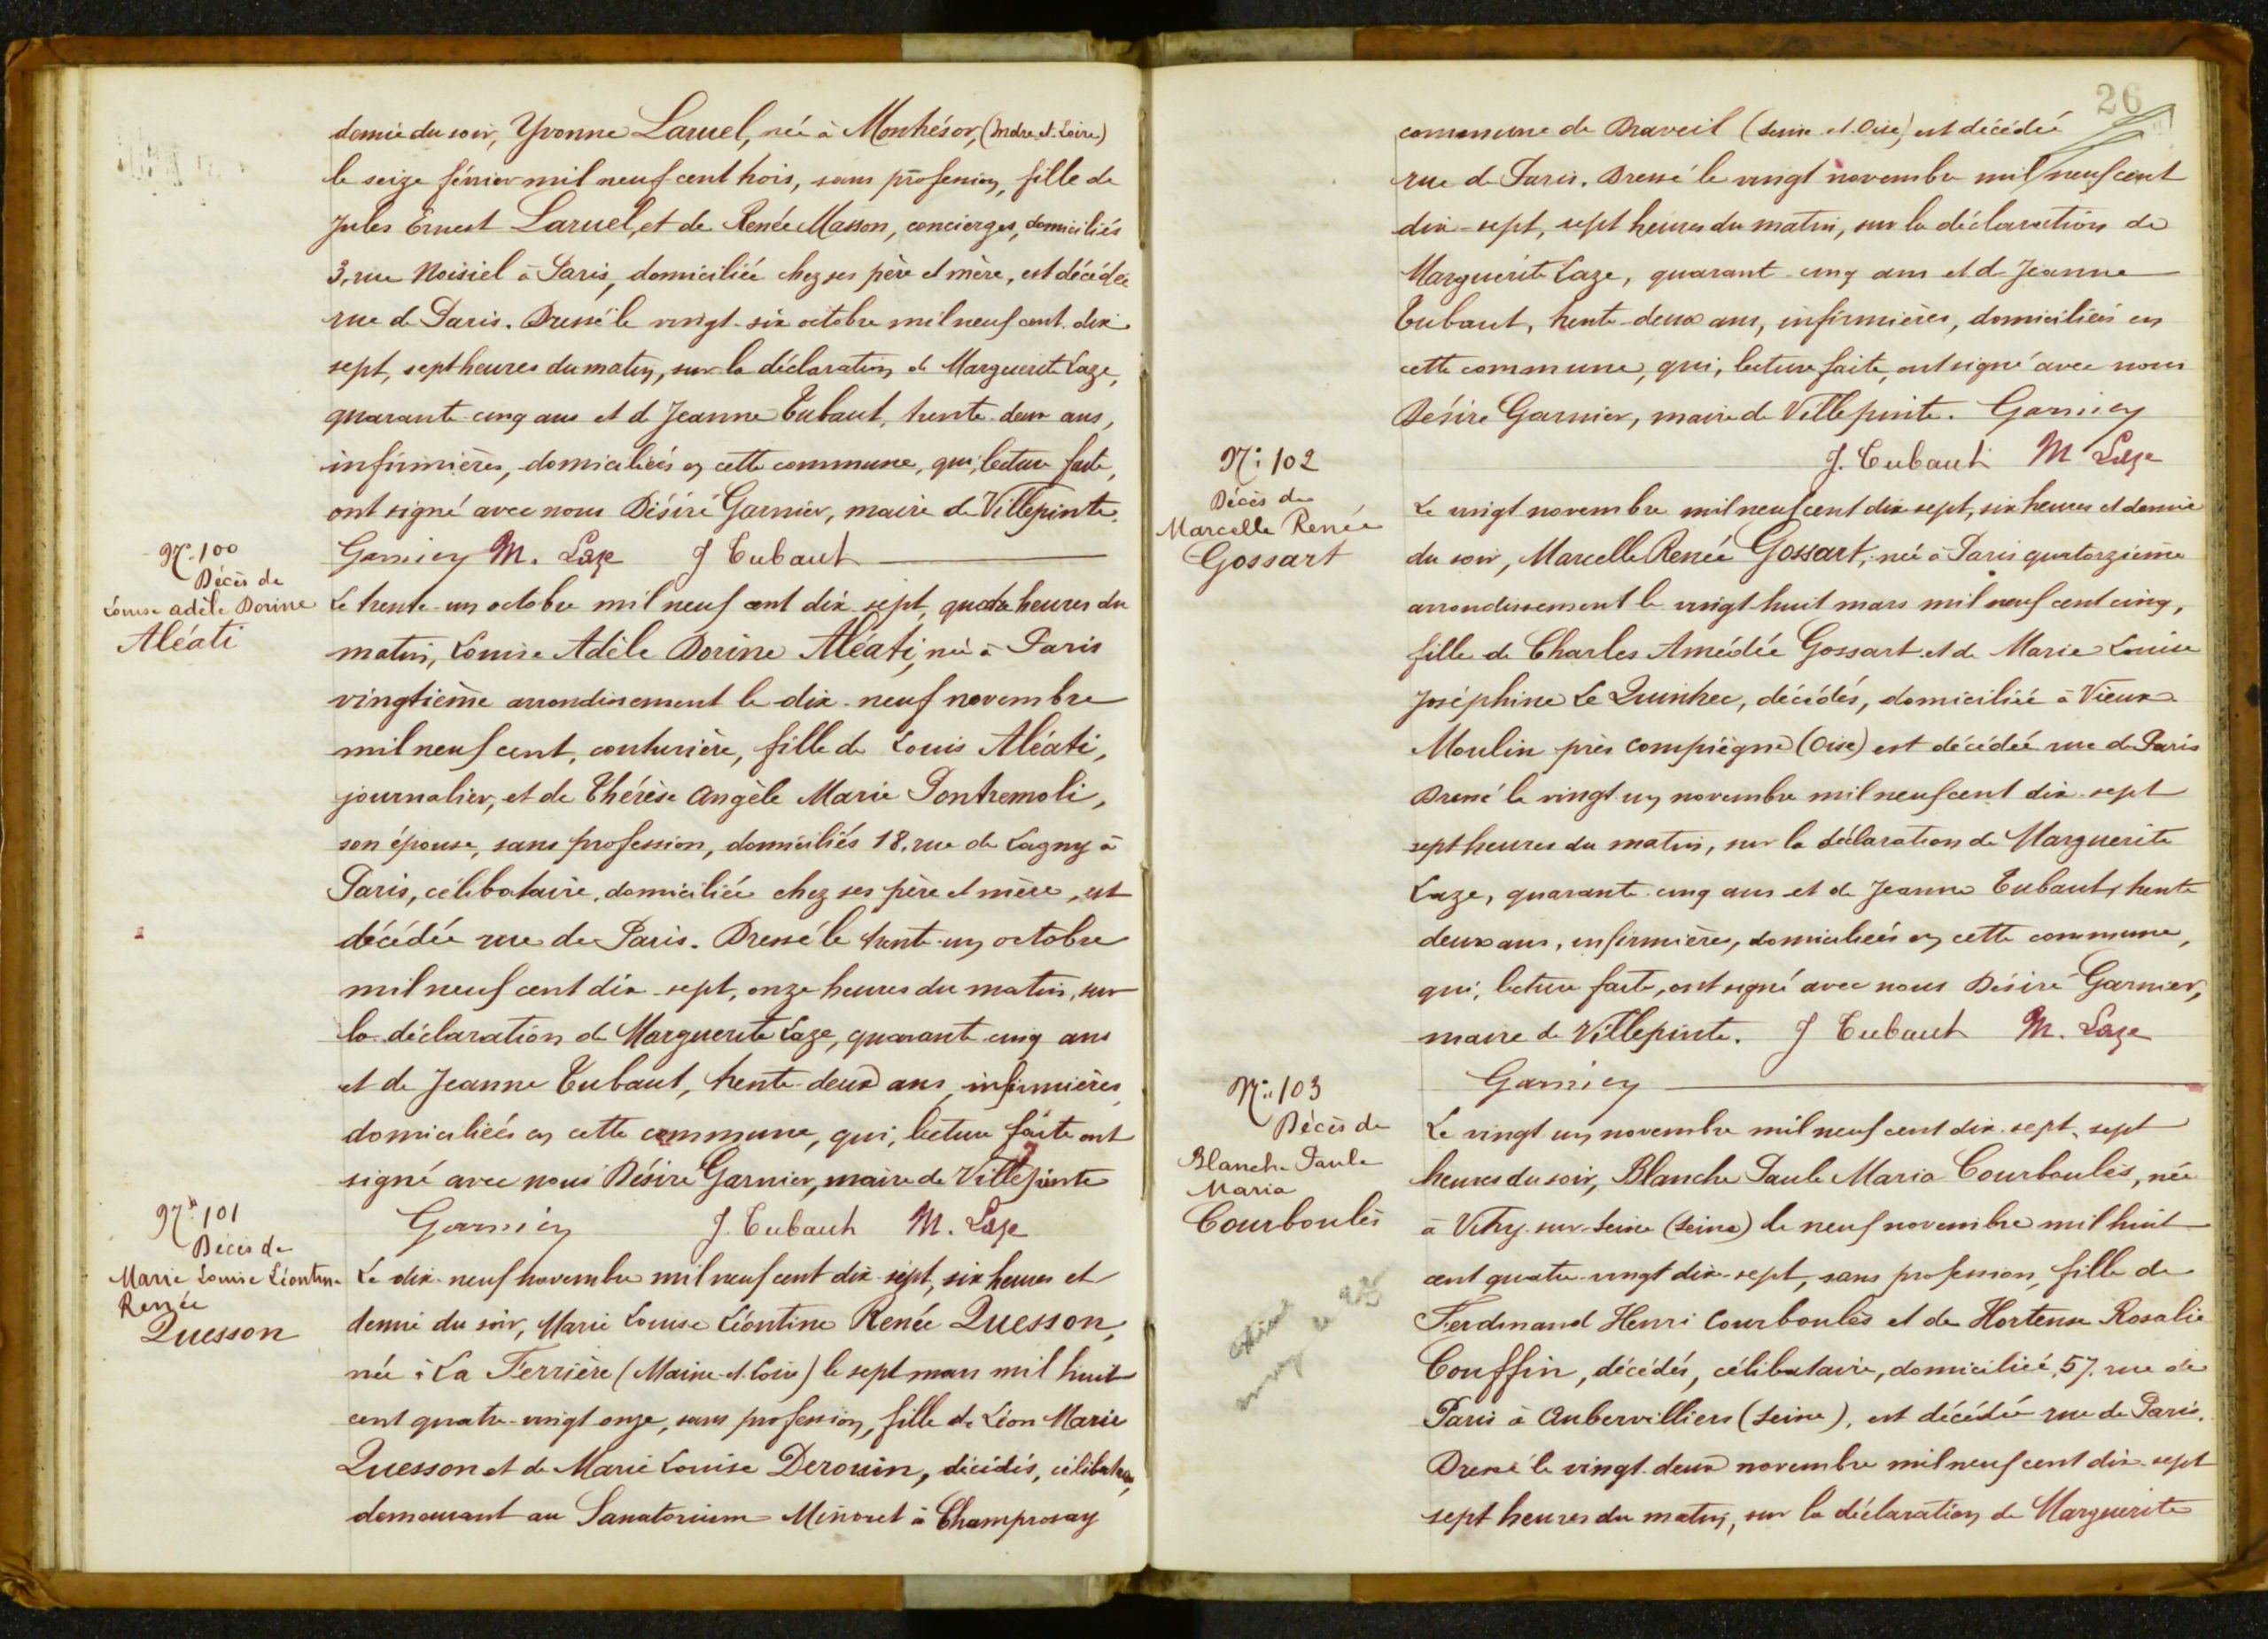 demie du soir, Yvonne Laruel, née à Montrésor, (Indre et Loire)
le seize février mil neuf cent trois, sans profession, fille de
Jules Ernest Laruel, et de Renée Masson, concierges, domiciliés
3, rue Noisiel à Paris, domiciliée chez ses père et mère, est décédée
rue de Paris. Dressé le vingt-six octobre mil neuf cent dix
sept, sept heures du matin, sur la déclaration de Marguerite Laze,
quarante-cinq ans et de Jeanne Tubaut, trente-deux ans,
infirmières, domiciliées en cette commune, qui, lecture faite,
ont signé avec nous Désiré Garnier, maire de Villepinte.
Garnier M. Laze J Tubaut
N° 100
Décès de
Louise Adèle Dorine
Aléati
Le trente-un octobre mil neuf cent dix-sept, quatre heures du
matin, Louise Adèle Dorine Aléati, née à Paris
vingtième arrondissement le dix-neuf novembre
mil neuf cent, couturière, fille de Louis Aléati,
journalier, et de Thérèse Angèle Marie Pontremoli,
son épouse, sans profession, domiciliés 18, rue de Lagny à
Paris, célibataire, domiciliée chez ses père et mère, est
décédée rue de Paris. Dressé le trente-un octobre
mil neuf cent dix-sept, onze heures du matin, sur
la déclaration de Marguerite Laze, quarante-cinq ans
et de Jeanne Tubaut, trente-deux ans, infirmières,
domiciliées en cette commune, qui, lecture faite ont
signé avec nous Désiré Garnier, maire de Villepinte
Garnier J. Tubaut M. Laze
N° 101
Décès de
Marie Louise Léontine
Renée
Quesson
Le dix-neuf novembre mil neuf cent dix-sept, six heures et
demie du soir, Marie Louise Léontine Renée Quesson,
née à La Ferrière (Maine-et-Loire) le sept mars mil huit
cent quatre-vingt onze, sans profession, fille de Léon Marie
Quesson et de Marie Louise Derouin, décédés, célibataire,
demeurant au Sanatorium Minoret à Champrosay
26
commune de Draveil (Seine-et-Oise) est décédée
rue de Paris. Dressé le vingt novembre mil neuf cent
dix-sept, sept heures du matin, sur la déclaration de
Marguerite Laze, quarante-cinq ans et de Jeanne
Tubaut, trente-deux ans, infirmières, domiciliées en
cette commune, qui, lecture faite, ont signé avec nous
Désiré Garnier, maire de Villepinte. Garnier
J. Tubaut M Laze
N° 102
Décès de
Marcelle Renée
Gossart
Le vingt novembre mil neuf cent dix-sept, six heures et demie
du soir, Marcelle Renée Gossart, née à Paris quatorzième
arrondissement le vingt-huit mars mil neuf cent cinq,
fille de Charles Amédée Gossart et de Marie Louise
Joséphine Le Quintrec, décédés, domiciliée à Vieux
Moulin près Compiègne (Oise) est décédée rue de Paris
Dressé le vingt-un novembre mil neuf cent dix-sept
sept heures du matin, sur la déclaration de Marguerite
Laze, quarante-cinq ans et de Jeanne Tubaut, trente
deux ans, infirmières, domiciliées en cette commune,
qui, lecture faite, ont signé avec nous Désiré Garnier,
maire de Villepinte. J Tubaut M. Laze
Garnier
N° 103
Décès de
Blanche Paule
Maria
Courboulès
Le vingt-un novembre mil neuf cent dix-sept, sept
heures du soir, Blanche Paule Maria Courboulès, née
à Vitry-sur-Seine (Seine) le neuf novembre mil huit
cent quatre-vingt dix-sept, sans profession, fille de
Ferdinand Henri Courboulès et de Hortense Rosalie
Couffin, décédés, célibataire, domiciliée, 57, rue de
Paris à Aubervilliers (Seine), est décédée rue de Paris.
Dressé le vingt-deux novembre mil neuf cent dix-sept
sept heures du matin, sur la déclaration de Marguerite